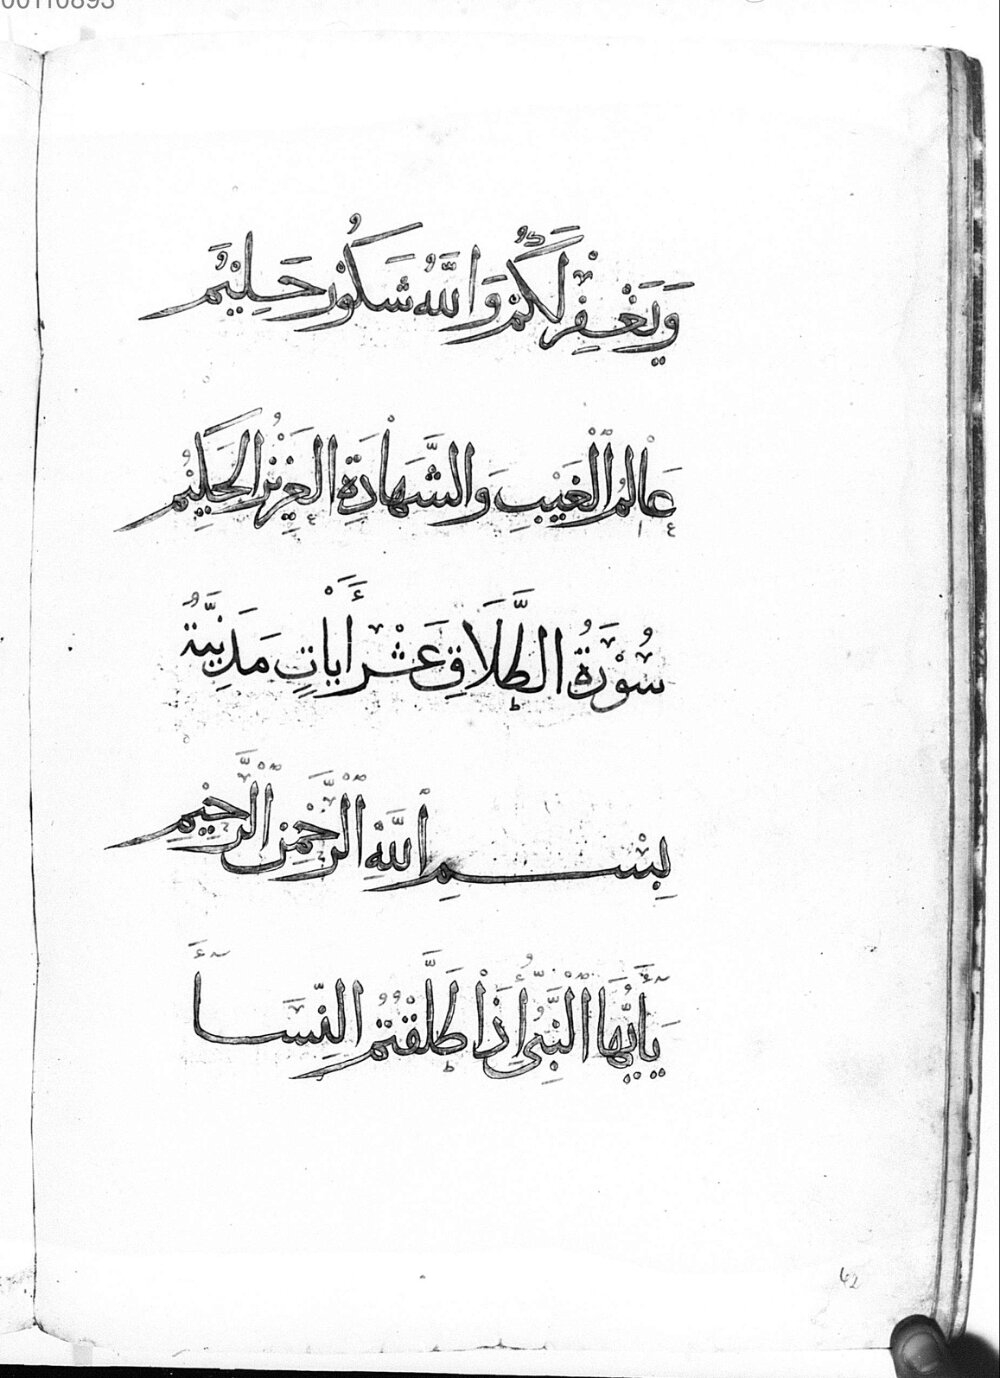 00110893
وَيَغْفِرْ لَكُمْ وَاللَّهُ شَكُورٌ حَلِيمٌ
عَالِمُ الْغَيْبِ وَالشَّهَادَةِ الْعَزِيزُ الْحَكِيمُ
سُورَةُ الطَّلَاقِ عَشْرَ أَيَاتٍ مَدَنِيَّةٌ
بِسْمِ اللَّهِ الرَّحْمَنِ الرَّحِيمِ
يَأَيُّهَا النَّبِيُّ إِذَا طَلَّقْتُمُ النِّسَاءَ
62